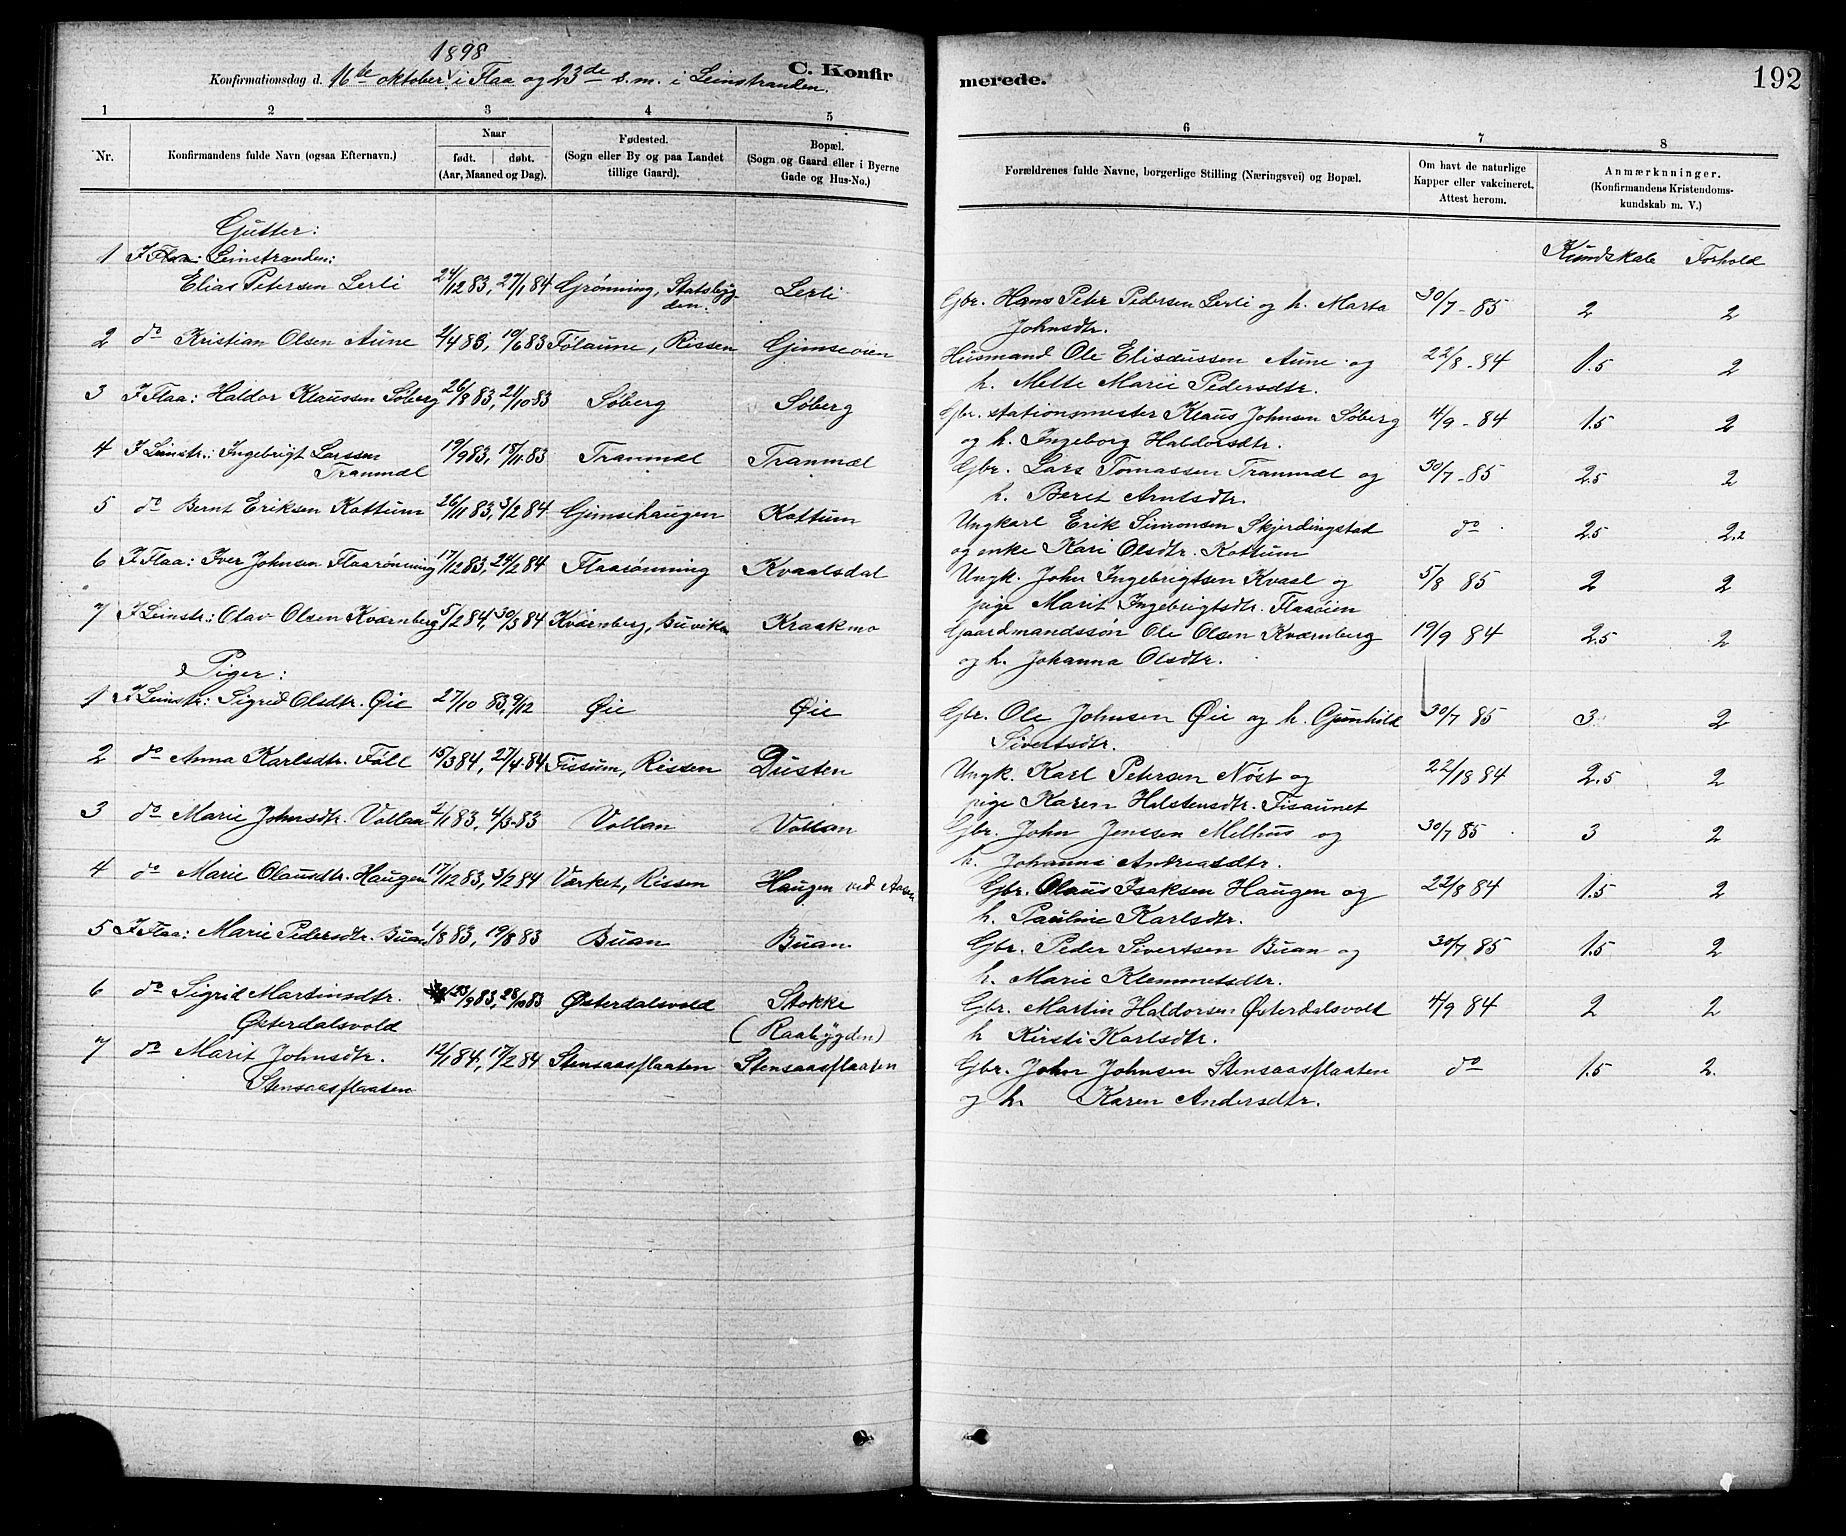 1898
Konfirmationsdag d. 16de oktober i Flaa og 23de s.m. i Leinstranden.
C. Konfir
merede.
192
1 2 3 4 5 6 7 8
Nr.
Konfirmandens fulde Navn (ogsaa Efternavn.)
Naar
født. døbt.
(Aar, Maaned og Dag).
Fødested.
(Sogn eller By og paa Landet
tillige Gaard).
Bopæl.
(Sogn og Gaard eller i Byerne
Gade og Hus-No.)
Forældrenes fulde Navne, borgerlige Stilling (Næringsvei) og Bopæl.
Om havt de naturlige
Kapper eller vakcineret.
Attest herom.
Anmærkninger.
(Konfirmandens Kristendoms-
kundskab m. V.)
Gutter:
Kundskab Forhold
1 I Flaa: Leinstranden:
Elias Petersen Lerli 24/12 83, 27/1 84 Grønning, Statsbyg
den. Lerli Gbr. Hans Peter Pedersen Lerli og h. Marta 30/7 - 85 2 2
Johnsdtr.
2 do Kristian Olsen Aune 2/4 83, 10/6 83 Følaune, Rissen Gimseøien Husmand Ole Elisæussen Aune og 22/8 - 84 1.5 2
h. Mette Marie Pedersdtr.
3 I Flaa: Haldor Klaussen Søberg 26/8 83, 21/10 83 Søberg Søberg Gbr. stationsmester Klaus Johnsen Søberg 4/9 - 84 1.5 2
og h. Ingeborg Haldorsdtr.
4 I Leinstr.: Ingebrigt Larssen 19/9 83, 18/11 83 Tranmæl Tranmæl Gbr. Lars Tomassen Tranmæl og 30/7 - 85 2.5 2
Tranmæl h. Beret Arntsdtr.
5 do Bernt Eriksen Kattum 26/11 83, 3/2 84 Gimsehaugen Kattum Ungkarl Erik Simonsen Skjerdingstad do 2.5 2.2
og enke Kari Olsdtr. Kattum
6 I Flaa: Iver Johnsen Flaarønning 17/12 83, 24/2 84 Flaarønning Kvaalsdal Ungk. John Ingebrigtsen Kvaal og 5/8 85 2 2
pige Marit Ingebrigtsdtr. Flaaøien
7 I Leinstr.: Olav Olsen Kværnberg 5/2 84, 30/3 84 Kværnberg, Buviken Kraakmo Gaardmandssøn Ole Olsen Kværnberg 19/9 84 2.5 2
og h. Johanna Olsdtr.
Piger:
1 I Leinstr: Sigrid Olsdtr. Øie 27/10 83, 9/12 Øie Øie Gbr. Ole Johnsen Øie og h. Gunhild 30/7 85 3 2
Sivertsdtr.
2 do Anna Karlsdtr. Føll 15/3 84, 27/4 84 Fissum, Rissen Dusten Ungk. Karl Petersen Nøst og 22/18 84 2.5 2
pige Karen Holstensdtr. Fisaunet
3 do Marie Johnsdtr. Vollan 2/1 83, 4/3 83 Vollan Vollan Gbr. John Jenssen Melhus og 30/7 85 3 2
h. Johanna Andreasdtr.
4 do Marie Olausdtr. Haugen 17/12 83, 3/2 84 Værket, Rissen Haugen ved Aasen Gbr. Olaus Isaksen Haugen og 22/8 84 1.5 2
h. Pauline Karlsdtr.
5 I Flaa: Marie Pedersdtr. Buan 1/8 83, 19/8 83 Buan Buan Gbr. Peder Sivertsen Buan og 30/7 85 1.5 2
h. Marie Klemmetsdtr.
6 do Sigrid Martinsdtr. 23/9 83, 28/10 83 Østerdalsvold Stokke Gbr. Martin Haldorsen Østerdalsvold 4/9 84 2 2
Østerdalsvold (Raabygden) h Kirsti Karlsdtr.
7 do Marit Johnsdtr. 12/1 84, 17/2 84 Stensaasflaaten Stensaasflaaten Gbr. John Johnsen Stensaasflaaten do 1.5 2.
Stensaasflaaten og h. Karen Andersdtr.